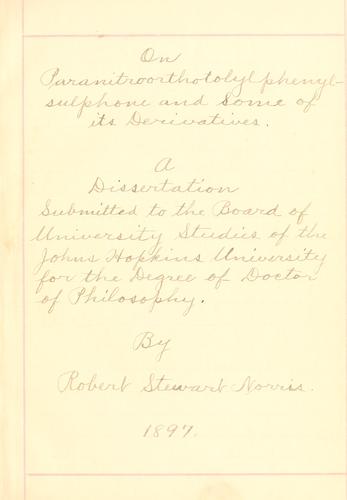 On
Paranitroorthotolyl phenyl-
sulphone and Some of
its Derivatives.
A
Dissertation
Submitted to the Board of
University Studies of the
Johns Hopkins University
for the Degree of Doctor
of Philosophy.
By
Robert Stewart Norris.
1897.